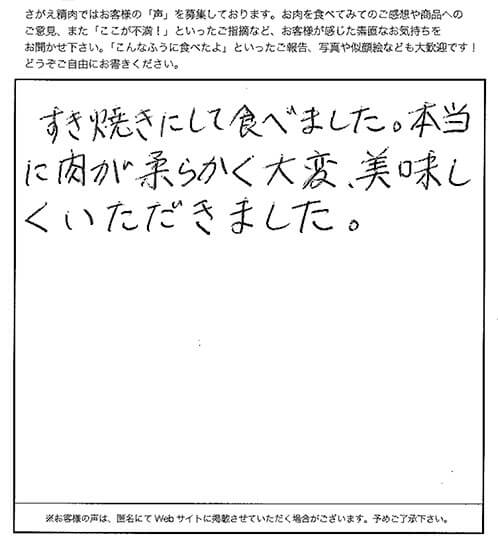 さがえ精肉ではお客様の「声」を募集しております。お肉を食べてみてのご感想や商品への
ご意見、また「ここが不満！」といったご指摘など、お客様が感じた素直なお気持ちを
お聞かせ下さい。「こんなふうに食べたよ」といったご報告、写真や似顔絵なども大歓迎です！
どうぞご自由にお書きください。
すき焼きにして食べました。本当
に肉が柔らかく大変、美味し
くいただきました。
※お客様の声は、匿名にて Web サイトに掲載させていただく場合がございます。予めご了承下さい。